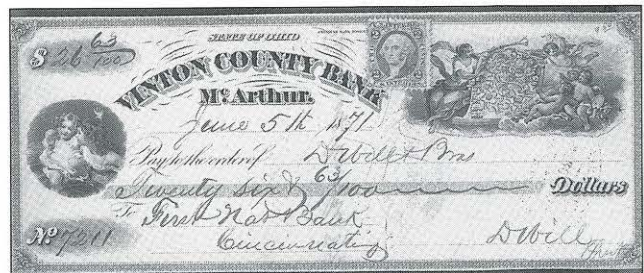 $ 26 63/100
STATE OF OHIO
VINTON COUNTY BANK
Mc.Arthur.
June 5th 1871
Pay to the order of D Will & Bros
Twenty six & 63/100 Dollars
To First Nat Bank
Cincinnati
No 7211
D Will